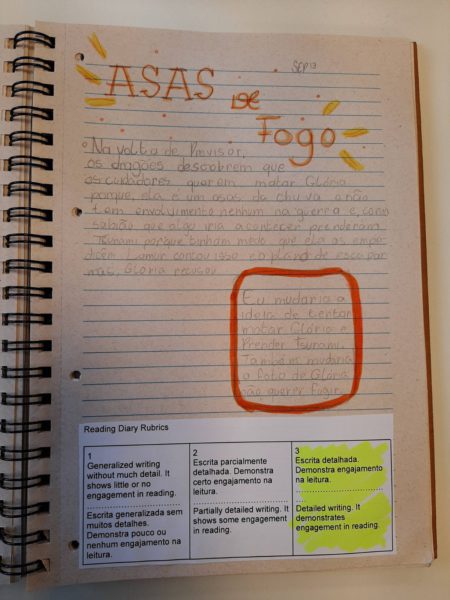 SEP 13
ASAS DE
FOGO
Na volta de Previsor,
os dragões descobrem que
os cuidadores querem matar Glória
porque, ela é um asas da chuva e não
tem envolvimento nenhum na guerra e, como
sabião que algo iria acontecer prenderam
Tsunami porque tinham medo que ela os empe
dicem. Lamur contou isso e o plano de escapar
mas, Glória recusou.
Eu mudaria a
ideia de tentar
matar Glória e
Prender Tsunami.
Também mudaria
o fato de Glória
não querer fugir.
Reading Diary Rubrics
1
Generalized writing
without much detail. It
shows little or no
engagement in reading.
Escrita generalizada sem
muitos detalhes.
Demonstra pouco ou
nenhum engajamento na
leitura.
2
Escrita parcialmente
detalhada. Demonstra
certo engajamento na
leitura.
Partially detailed writing. It
shows some engagement
in reading.
3
Escrita detalhada.
Demonstra engajamento
na leitura.
Detailed writing. It
demonstrates
engagement in reading.